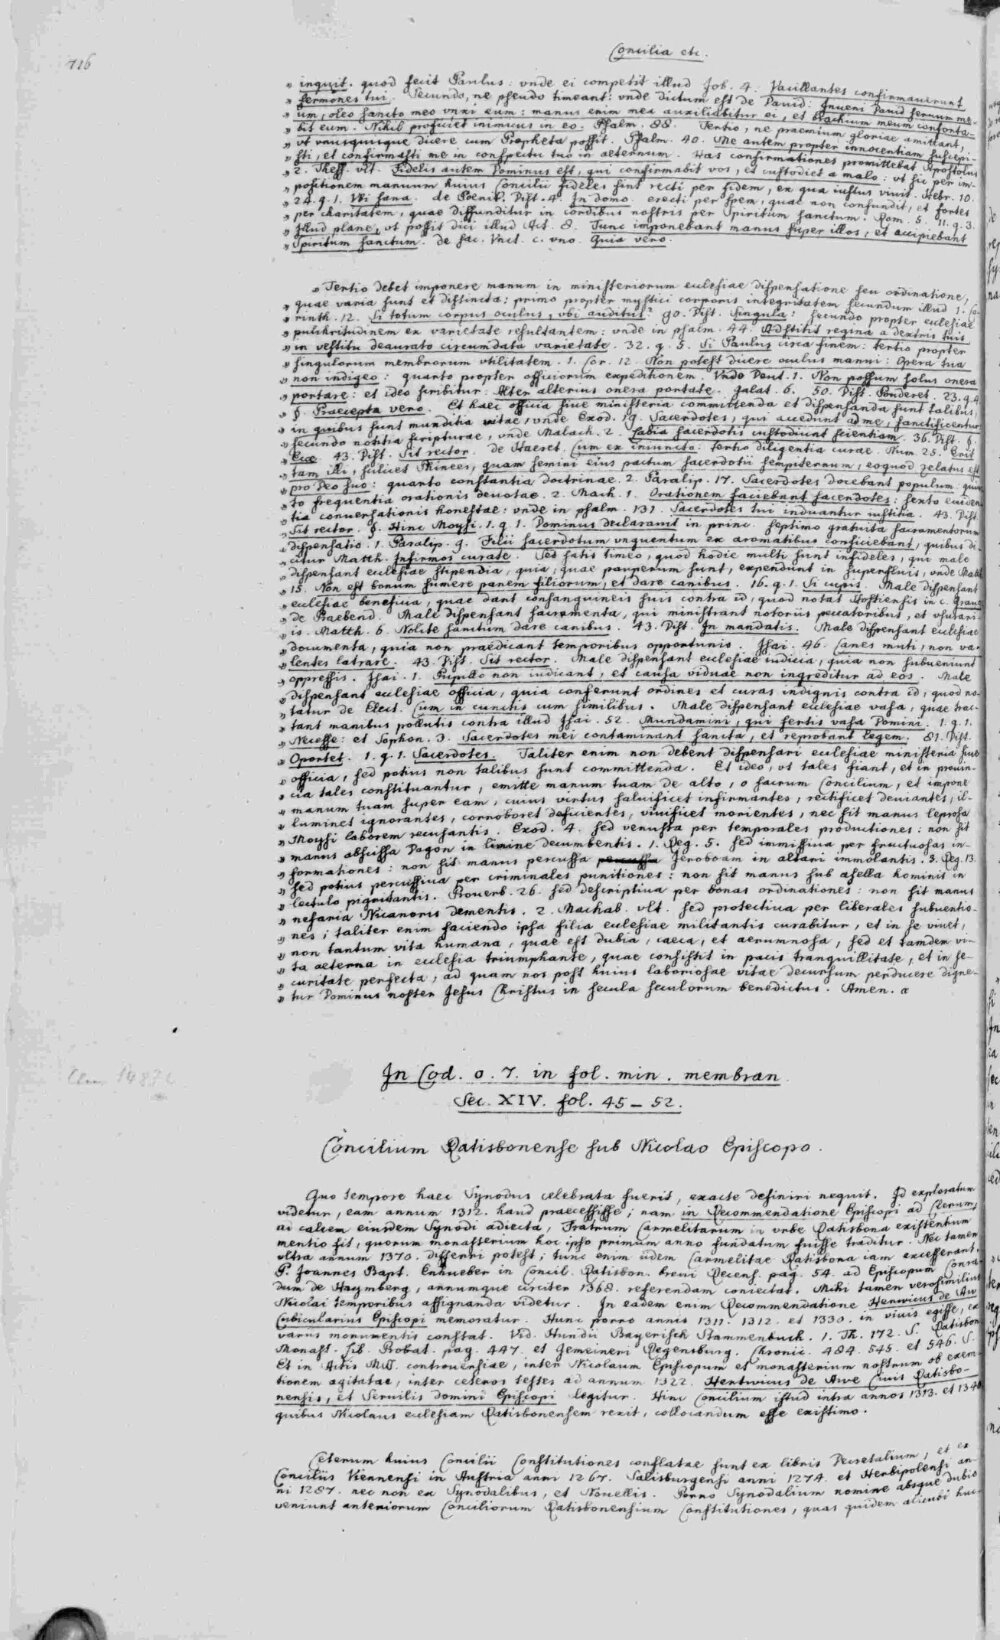 716
Concilia etc.
„ inquit. quod fecit Paulus: vnde ei competit illud Job. 4. Vacillantes confirmauerunt
„ sermones tui. Secundo, ne pseudo timeant: vnde dictum est de Dauid: Inueni Dauid seruum me-
„ um, oleo sancto meo vnxi eum: manus enim mea auxiliabitur ei, et brachium meum conforta-
„ bit eum. Nihil proficiet inimicus in eo. Psalm. 88. Tertio, ne praemium gloriae amittant,
„ vt vnusquisque dicere cum Propheta possit. Psalm. 40. Me autem propter innocentiam suscepi-
„ sti, et confirmasti me in conspectu tuo in aeternum. Has confirmationes promittebat Apostolus
„ 2. Thess. vlt. Fidelis autem Dominus est, qui confirmabit vos, et custodiet a malo: vt sic per im-
„ positionem manuum huius Concilii fideles sint recti per fidem, ex qua iustus viuit. Hebr. 10.
„ 24. q. 1. Vbi sana. de Poenit. Dist. 4. In domo. erecti per spem, quae non confundit, et fortes
„ per charitatem, quae diffunditur in cordibus nostris per Spiritum sanctum. Rom. 5. 11. q. 3.
„ Illud plane, vt possit dici illud Act. 8. Tunc imponebant manus super illos, et accipiebant
„ Spiritum sanctum. de sac. vnct. c. vno. Quia vero.
„ Tertio debet imponere manum in ministeriorum ecclesiae dispensatione seu ordinatione,
„ quae varia sunt et distincta: primo propter mystici corporis integritatem secundum illud 1. Co-
„ rinth. 12. Si totum corpus oculus, vbi auditus? 90. Dist. Singula: secundo propter ecclesiae
„ pulchritudinem ex varietate resultantem; vnde in psalm. 44. Adstitit regina a dextris tuis
„ in vestitu deaurato circumdata varietate. 32. q. 5. Si Paulus circa finem: tertio propter
„ singulorum membrorum vtilitatem. 1. Cor. 12. Non potest dicere oculus manui: Opera tua
„ non indigeo: quarto propter officiorum expeditionem. Vnde Deut. 1. Non possum solus onera
„ portare: et ideo scribitur. Alter alterius onera portate. Galat. 6. 50. Dist. Ponderet. 23. q. 4
„ §. Praecepta vero. Et haec officia siue ministeria committenda et dispensanda sunt talibus,
„ in quibus sunt munditia vitae, vnde Exod. 19. Sacerdotes, qui accedunt ad me, sanctificentur
„ secundo notitia scripturae, vnde Malach. 2. Labia sacerdotis custodiunt scientiam. 36. Dist. §.
„ Ecce. 43. Dist. Sit rector. de Haeret. Cum ex iniuncto. tertio diligentia curae. Num 25. Erit
„ tam illi, scilicet Phinees, quam semini eius pactum sacerdotii sempiternum, eo quod zelatus est
„ pro Deo suo: quarto constantia doctrinae. 2. Paralip. 17. Sacerdotes docebant populum quin
„ to frequentia orationis deuotae. 2. Mach. 1. Orationem faciebant sacerdotes: sexto euiden-
„ tia conuersationis honestae: vnde in psalm. 131. Sacerdotes tui induantur iustitia. 43. Dist.
„ Sit rector. §. Hinc Moysi. 1. q. 1. Dominus declarauit in princ. septimo gratuita sacramentorum
„ dispensatio. 1. Paralip. 9. Filii sacerdotum vnguentum ex aromatibus conficiebant, quibus di-
„ citur Matth. Infirmos curate. Sed satis timeo, quod hodie multi sunt infideles, qui male
„ dispensant ecclesiae stipendia, quia, quae pauperum sunt, expendunt in superfluis, vnde Matth
„ 15. Non est bonum sumere panem filiorum, et dare canibus. 16. q. 1. Si cupis. Male dispensant
„ ecclesiae beneficia, quae dant consanguineis suis contra id, quod notat Hostiensis in c. Graue
„ de Praebend. Male dispensant sacramenta, qui ministrant notoriis peccatoribus, et vsurari-
„ is. Matth. 6. Nolite sanctum dare canibus. 43. Dist. In mandatis. Male dispensant ecclesiae
„ documenta, quia non praedicant temporibus opportunis. Isai. 46. Canes muti, non va-
„ lentes latrare. 43. Dist. Sit rector. Male dispensant ecclesiae iudicia, quia non subueniunt
„ oppressis. Isai. 1. Pupillo non iudicant, et causa viduae non ingreditur ad eos. Male
„ dispensant ecclesiae officia, quia conferunt ordines et curas indignis contra id, quod no-
„ tatur de Elect. Cum in cunctis cum similibus. Male dispensant ecclesiae vasa, quae trac-
„ tant manibus pollutis contra illud Isai. 52. Mundamini, qui fertis vasa Domini. 1. q. 1.
„ Necesse: et Sophon. 3. Sacerdotes mei contaminant sancta, et reprobant legem. 81. Dist.
„ Oportet. 1. q. 1. Sacerdotes. Taliter enim non debent dispensari ecclesiae ministeria siue
„ officia, sed potius non talibus sunt committenda. Et ideo, vt tales fiant, et in prouin-
„ cia tales constituantur, emitte manum tuam de alto, o sacrum Concilium, et impone
„ manum tuam super eam, cuius virtus saluificet infirmantes, rectificet deuiantes, il-
„ luminet ignorantes, corroboret deficientes, viuificet morientes, nec sit manus leprosa
„ Moysi laborem recusantis. Exod. 4. sed venusta per temporales productiones: non sit
„ manus abscissa Dagon in limine decumbentis. 1. Reg. 5. sed immissiua per fructuosas in-
„ formationes: non sit manus percussa Jeroboam in altari immolantis. 3. Reg. 13.
„ sed potius percussiua per criminales punitiones: non sit manus sub asella hominis in
„ lectulo pigritantis. Prouerb. 26. sed descriptiua per bonas ordinationes: non sit manus
„ nefaria Nicanoris dementis. 2. Machab. vlt. sed protectiua per liberales subuentio-
„ nes; taliter enim faciendo ipsa filia ecclesiae militantis curabitur, et in se viuet,
„ non tantum vita humana, quae est dubia, caeca, et aerumnosa, sed et tamdem vi-
„ ta aeterna in ecclesia triumphante, quae consistit in pacis tranquillitate, et in se-
„ curitate perfecta, ad quam nos post huius laboriosae vitae decursum perducere digne-
„ tur Dominus noster Jesus Christus in secula seculorum benedictus. Amen. a
In Cod. o. 7. in fol. min. membran
Sec. XIV. fol. 45–52.
Concilium Ratisbonense sub Nicolao Episcopo.
Quo tempore haec Synodus celebrata fuerit, exacte definiri nequit. Id exploratum
videtur, eam annum 1312. haud praecessisse; nam in Recommendatione Episcopi ad Clerum,
ac calcem eiusdem Synodi adiecta, Fratrum Carmelitarum in vrbe Ratisbona existentium
mentio fit, quorum monasterium hoc ipso primum anno fundatum fuisse traditur. Nec tamen
vltra annum 1370. differri potest; tunc enim iidem Carmelitae Ratisbona iam excesserant.
P. Joannes Bapt. Enhueber in Concil. Ratisbon. breui Recens. pag. 54. ad Episcopum Conra-
dum de Haymberg, annumque circiter 1368. referendam coniectat. Mihi tamen verosimilius
Nicolai temporibus assignanda videtur. In eadem enim Recommendatione Henwicus de Au
Cubicularius Episcopi memoratur. Hunc porro annis 1311. 1312. et 1330. in viuis egisse, ex
variis monumentis constat. Vid. Hundii Bayerisch Stammenbuch. 1. Th. 172. S. Ratisbon
Monast. Lib. Probat. pag. 447. et Gemeineri Regensburg. Chronic. 484. 545. et 546. S.
Et in Actis MS. controuersiae, inter Nicolaum Episcopum et monasterium nostrum ob exem-
tionem agitatae, inter ceteros testes ad annum 1322. Hertwicus de Awe Ciuis Ratisbo-
nensis, et Seruilis Domini Episcopi legitur. Hinc Concilium istud intra annos 1313. et 1340
quibus Nicolaus ecclesiam Ratisbonensem rexit, collocandum esse existimo.
Ceterum huius Concilii Constitutiones conflatae sunt ex libris Decretalium, et ex
Conciliis Viennensi in Austria anni 1267. Salisburgensi anni 1274. et Herbipolensi an-
ni 1287. nec non ex Synodalibus, et Nouellis. Porro Synodalium nomine absque dubio
veniunt anteriorum Conciliorum Ratisbonensium Constitutiones, quas quidem alicubi huc